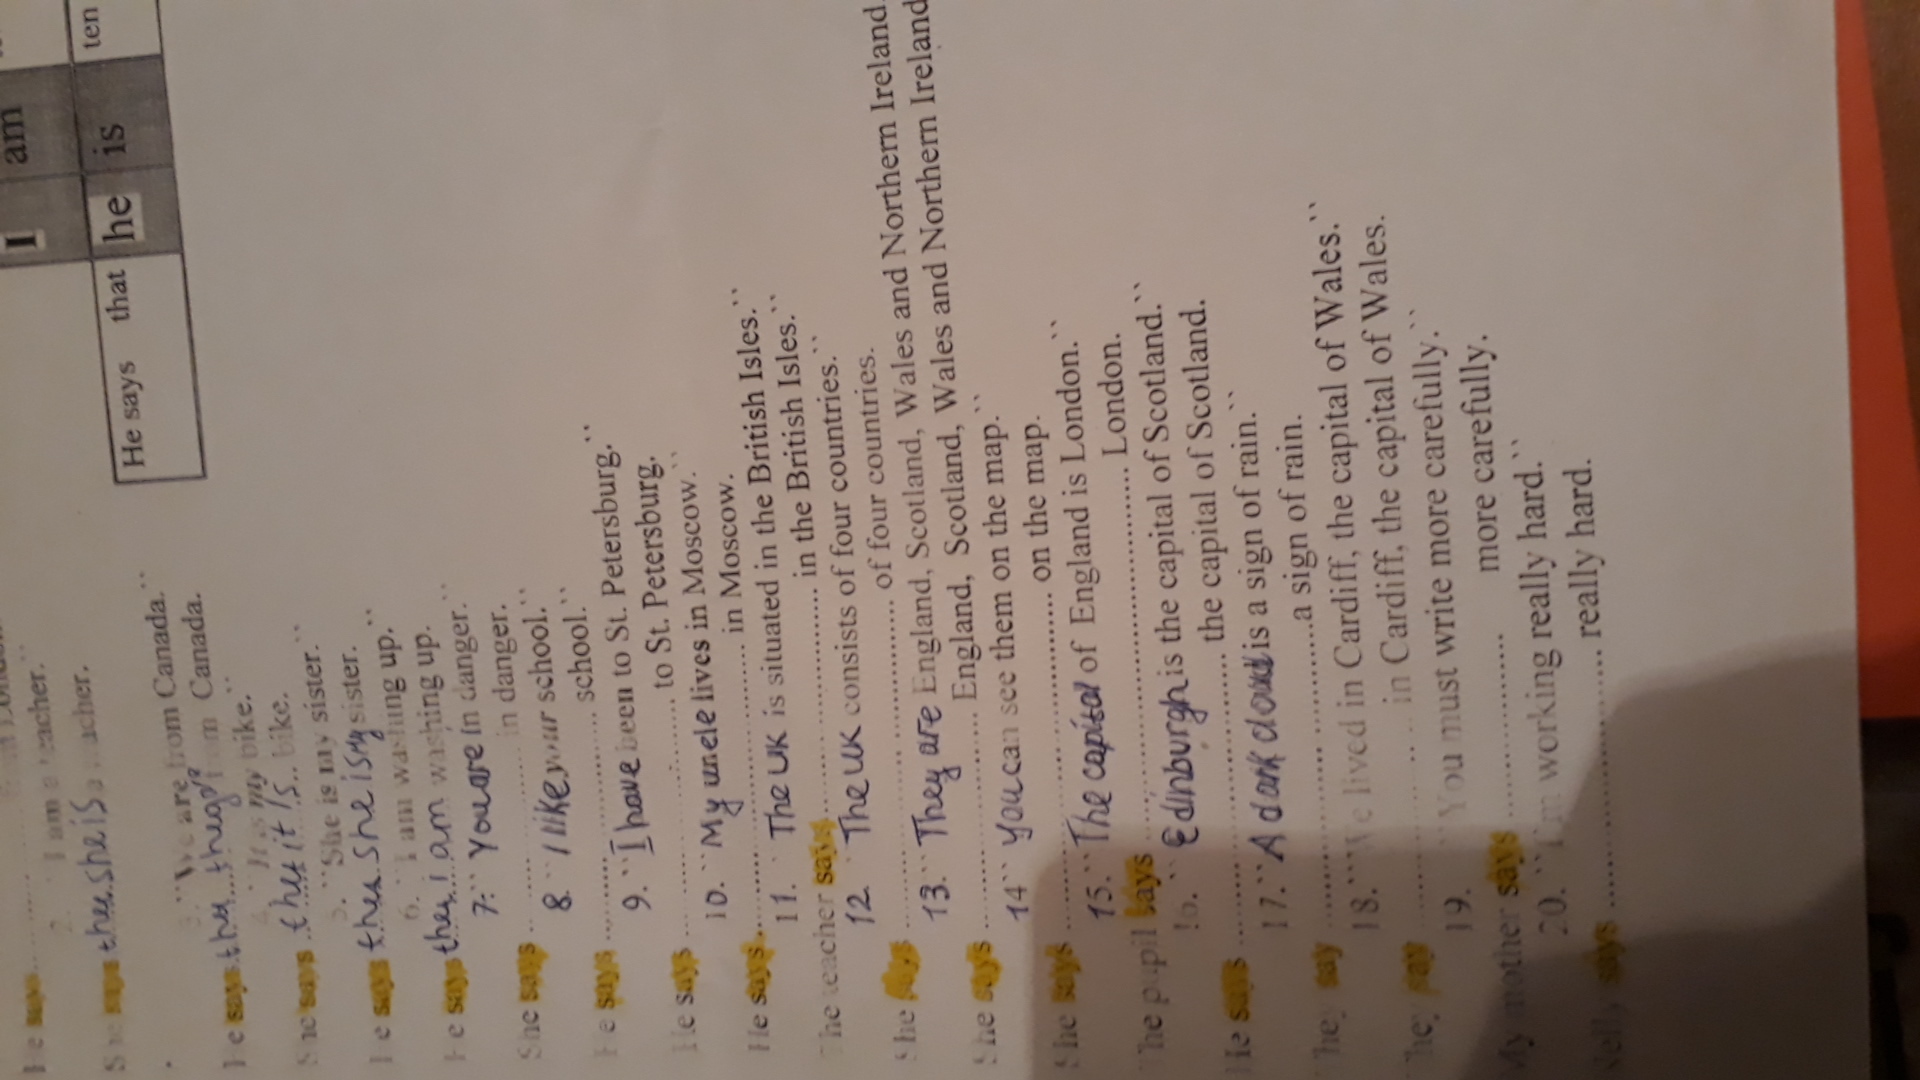 I am
He says that he is ten
He says
2. I am a teacher."
She says that she is a teacher.
3. "We are from Canada."
He says that from Canada.
It is my bike."
She says that it is bike.
5. "She is my sister."
He says that she is my sister.
6. "I am washing up."
He says that i am washing up.
7. "You are in danger."
She says .......... in danger.
8. "I like your school."
He says .......... school.
9. "I have been to St. Petersburg."
He says .......... to St. Petersburg.
10. "My unele lives in Moscow."
He says .......... in Moscow.
11. "The UK is situated in the British Isles."
The teacher says .......... in the British Isles."
12. "The UK consists of four countries."
She says .......... of four countries.
13. "They are England, Scotland, Wales and Northern Ireland.
She says .......... England, Scotland, Wales and Northern Ireland
14 "You can see them on the map."
She says .......... on the map.
15. "The capital of England is London."
The pupil says .......... London.
16. "Edinburgh is the capital of Scotland."
He says .......... the capital of Scotland.
17. "A dark cloud is a sign of rain."
They say ..........a sign of rain.
18. "We lived in Cardiff, the capital of Wales."
They say .......... in Cardiff, the capital of Wales.
19. "You must write more carefully."
My mother says .......... more carefully.
20. "I'm working really hard."
Nelly says .......... really hard.